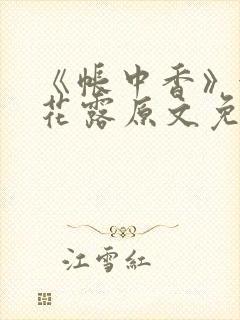 《帐中香》
花露原文免
江雪红